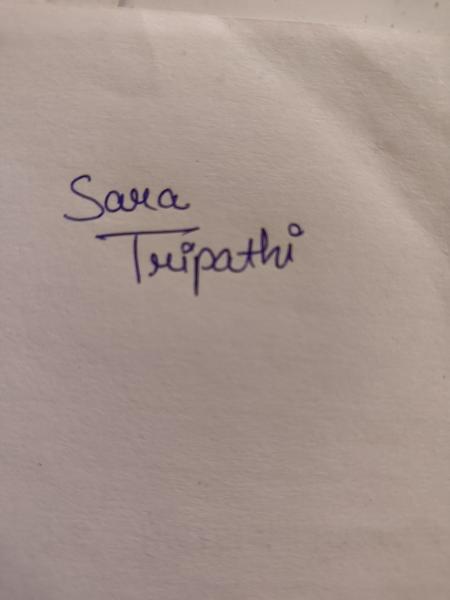 Sara
Tripathi